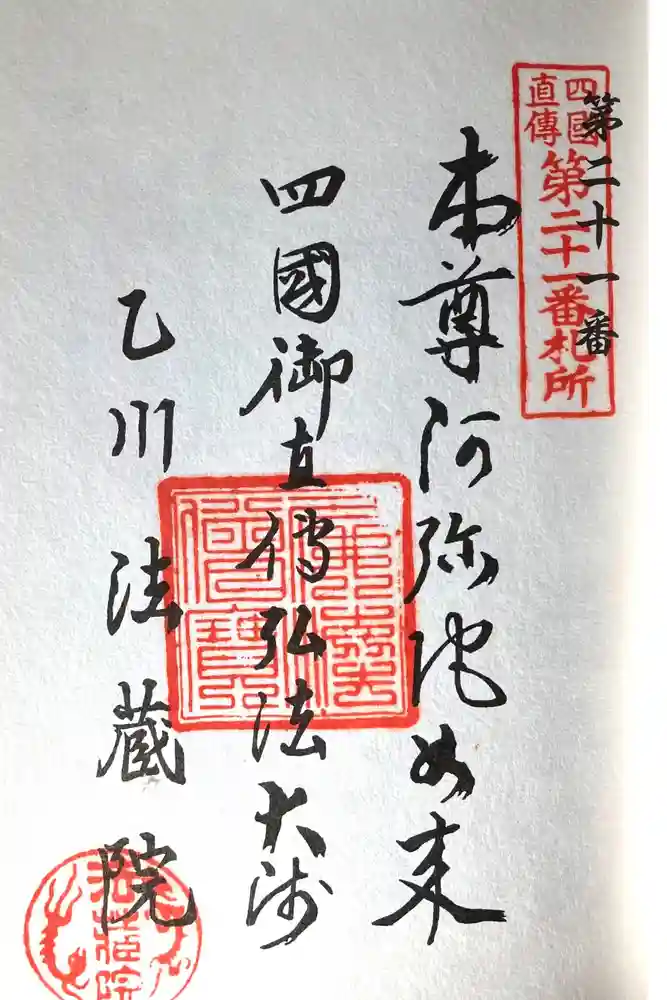 第二十一番
四國
直傳
第二十一番札所
本尊阿弥陀如来
四國御直傳弘法大師
乙川 法蔵院
佛法
僧寳
法蔵院